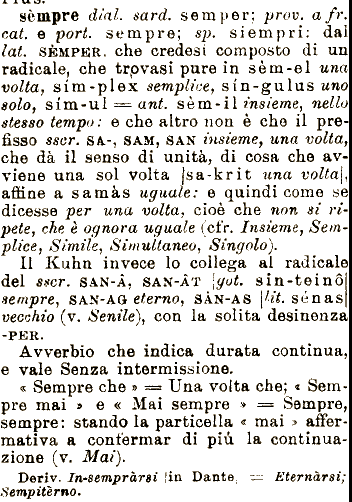 sèmpre dial. sard. semper; prov. a fr.
cat. e port. sempre; sp. siempri: dal
lat. SÈMPER. che credesi composto di un
radicale, che trovasi pure in sèm-el una
volta, sím-plex semplice, sín-gulus uno
solo, sím-ul = ant. sèm-il insieme, nello
stesso tempo: e che altro non è che il pre-
fisso sscr. SA-, SAM, SAN insieme, una volta,
che dà il senso di unità, di cosa che av-
viene una sol volta [sa-krit una volta],
affine a samàs uguale: e quindi come se
dicesse per una volta, cioè che non si ri-
pete, che è ognora uguale (cfr. Insieme, Sem-
plice, Simile, Simultaneo, Singolo).
Il Kuhn invece lo collega al radicale
del sscr. SAN-Â, SAN-ÂT [got. sin-teinô]
sempre, SAN-AG eterno, SÀN-AS [lit. sénas]
vecchio (v. Senile), con la solita desinenza
-PER.
Avverbio che indica durata continua,
e vale Senza intermissione.
« Sempre che » = Una volta che; « Sem-
pre mai » e « Mai sempre » = Sempre,
sempre: stando la particella « mai » affer-
mativa a confermar di piú la continua-
zione (v. Mai).
Deriv. In-sempràrsi (in Dante) = Eternàrsi;
Sempitèrno.